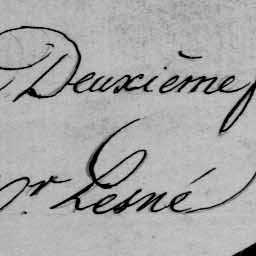 Deuxième
Sr. Lesné